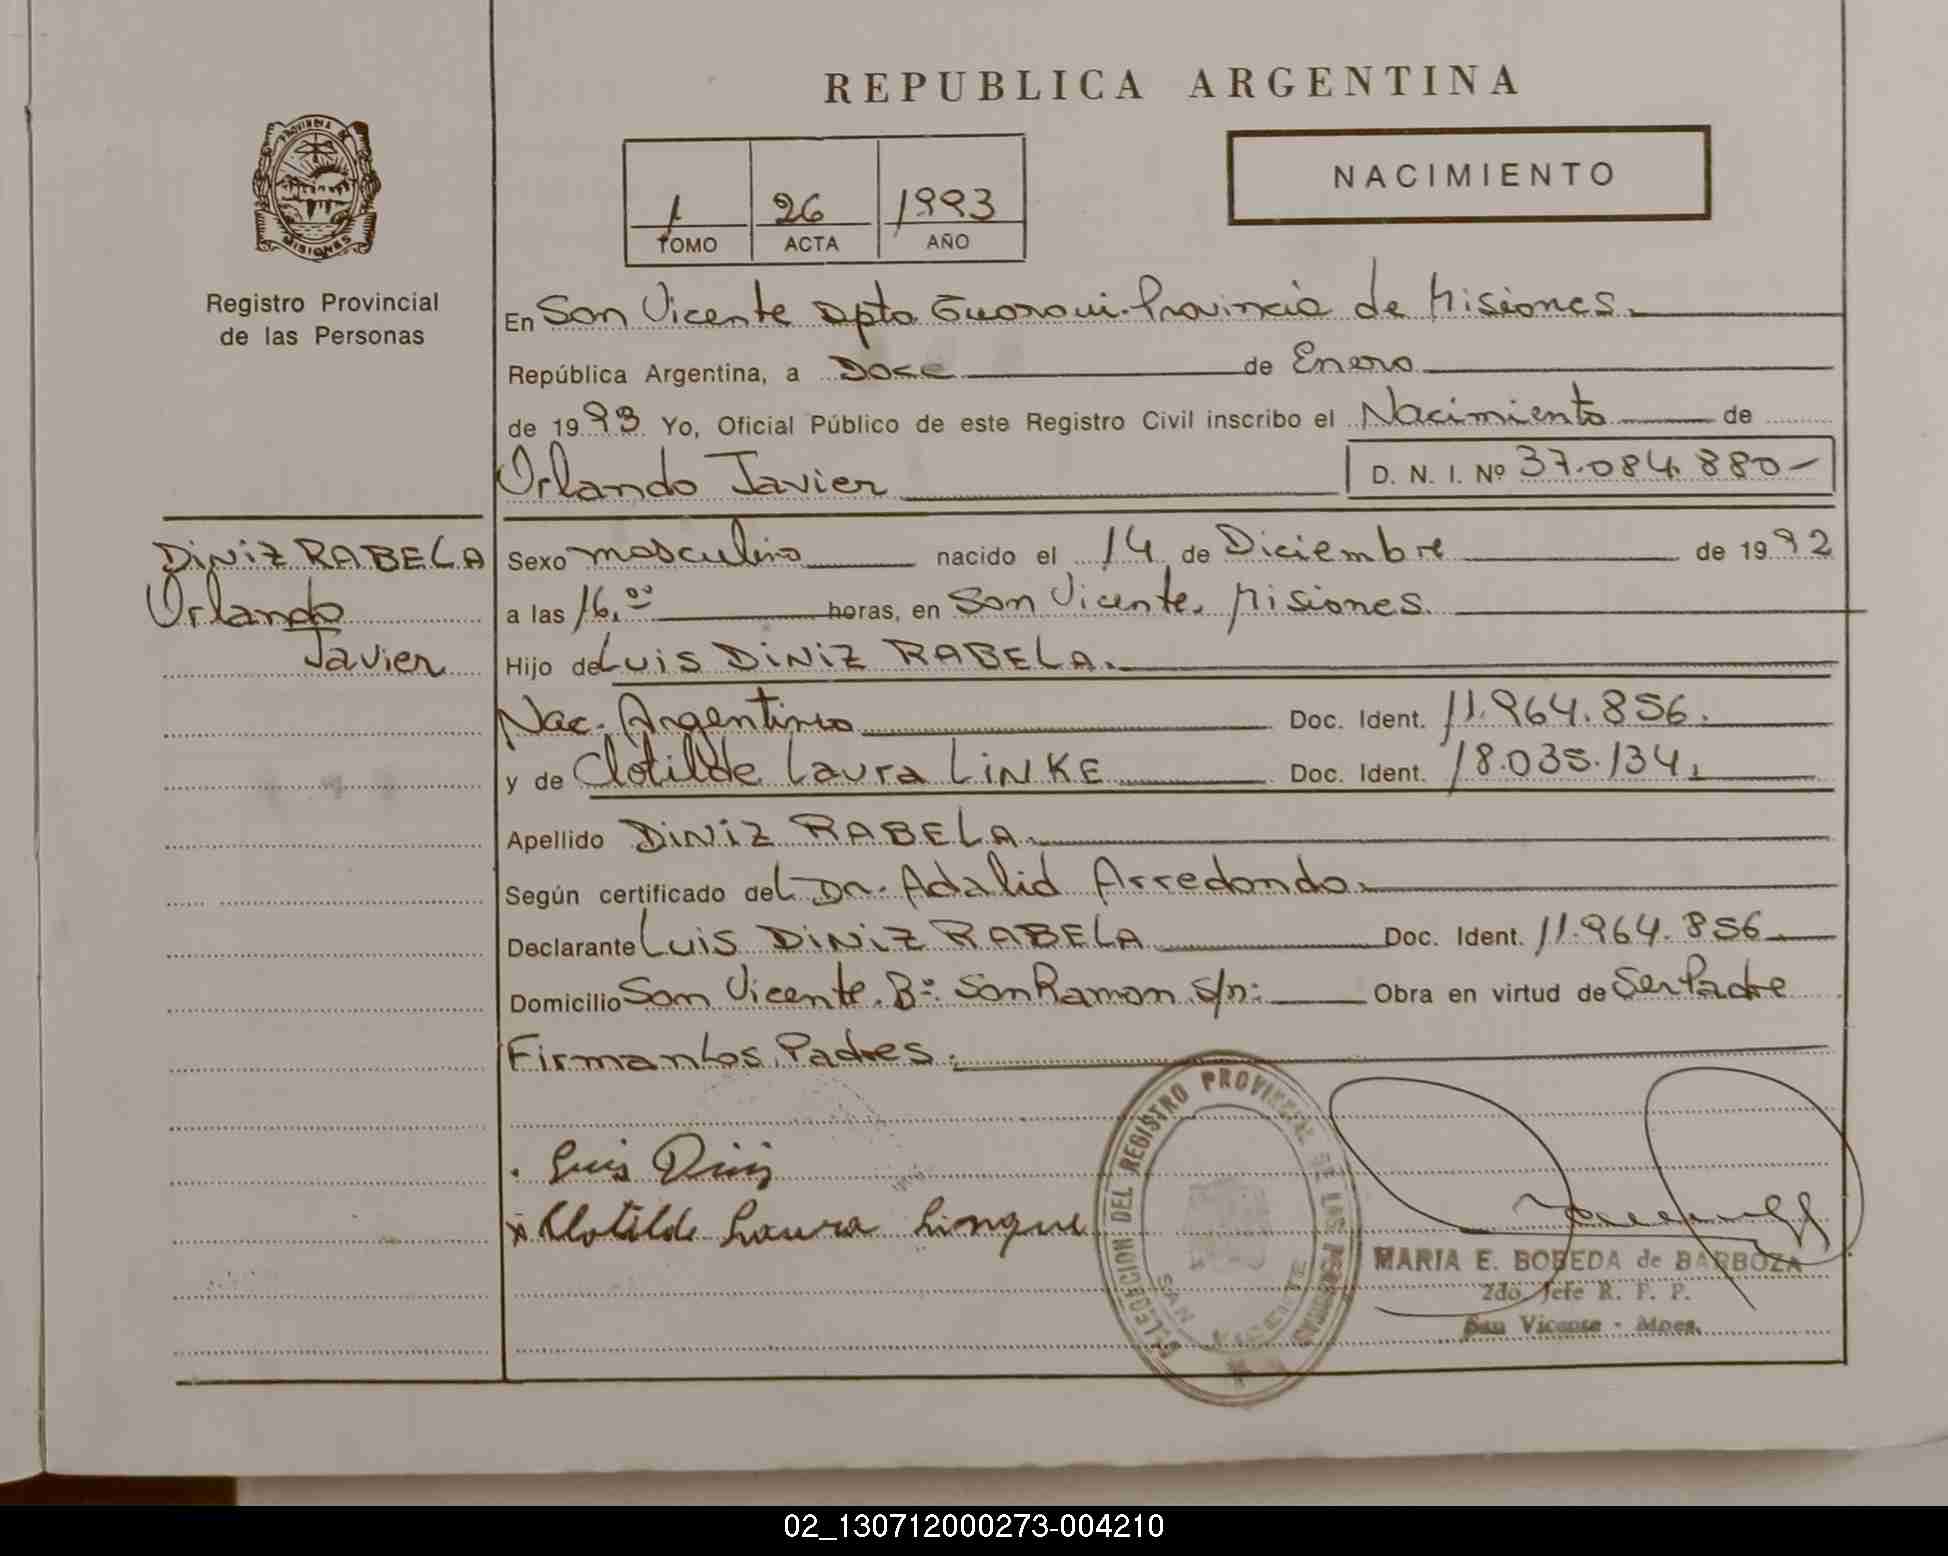 REPUBLICA ARGENTINA
PROVINCIA DE MISIONES
Registro Provincial
de las Personas
1 26 1993
TOMO ACTA AÑO
NACIMIENTO
En San Vicente Dpto Guarani. Provincia de Misiones.
República Argentina, a Doce de Enero
de 1993 Yo, Oficial Público de este Registro Civil inscribo el Nacimiento de
Orlando Javier D. N. I. Nº 37.084.880-
DiNiZ RABELA
Orlando
Javier
Sexo masculino nacido el 14 de Diciembre de 1992
a las 16.00 horas, en San Vicente. Misiones.
Hijo de Luis DiNiZ RABELA.
Nac. Argentino Doc. Ident. 11.964.856.
y de Clotilde Laura LiNKE Doc. Ident. 18.035.134.
Apellido DiNiZ RABELA.
Según certificado del Dr. Adalid Arredondo.
Declarante Luis DiNiZ RABELA Doc. Ident. 11.964.856.
Domicilio San Vicente. Bº. San Ramon s/n: Obra en virtud de Ser Padre
Firmantes, Padres.
Luis Diniz
x Clotilde Laura Lingue
DELEGACION DEL REGISTRO PROVINCIAL DE LAS PERSONAS
SAN VICENTE
MARIA E. BOBEDA de BARBOZA
2do. Jefe R. P. P.
San Vicente - Mnes.
02_130712000273-004210